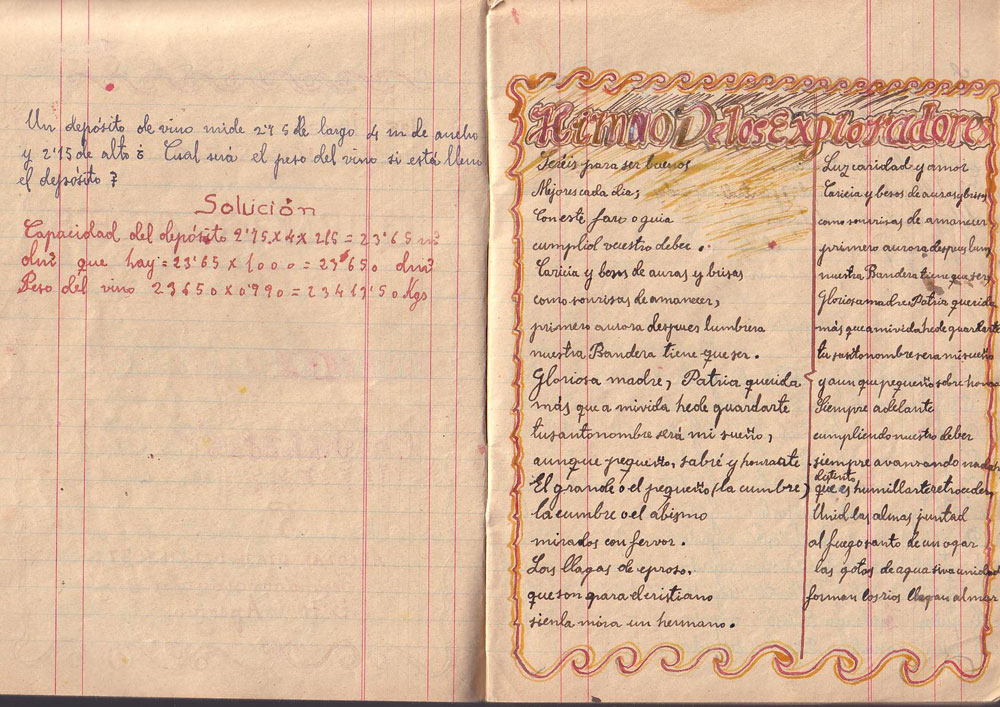 Un depósito de vino mide 2'75 de largo 4 m de ancho
y 2'15 de alto ¿ Cual será el peso del vino si está lleno
el depósito ?
Solución
Capacidad del depósito 2'75 x 4 x 2'15 = 23'65 m³
dm³ que hay = 23'65 x 1000 = 23650 dm³
Peso del vino 23650 x 0'990 = 23413'50 Kgs
Himno De los Exploradores
Seréis para ser buenos
Mejores cada dia;
Con este faro o guia
cumplid vuestro deber.
Caricia y besos de auras y brisas
como sonrisas de amanecer,
primero aurora despues lumbrera
nuestra Bandera tiene que ser.
Gloriosa madre, Patria querida
más que a mi vida he de guardarte
tu santo nombre será mi sueño,
aunque pequeño, sabré y honrarte
El grande o el pequeño (la cumbre)
la cumbre o el abismo
mirados con fervor.
Las llagas de
que son para el cristiano
si en la mira un hermano.
Luz caridad y amor
Caricia y besos de auras y brisas
como sonrisas de amanecer
primero aurora despues lum
nuestra Bandera tiene que ser
Gloriosa madre Patria querida
más que a mi vida he de guardarte
tu santo nombre sera mi sueño
y aunque pequeño sabre honra
Siempre adelante
cumpliendo nuestro deber
siempre avansando nada
distinto
que es humillante retroceder
Unid las almas juntad
al fuego santo de un ogar
las gotas de agua si va unidad
forman los rios llegan al mar